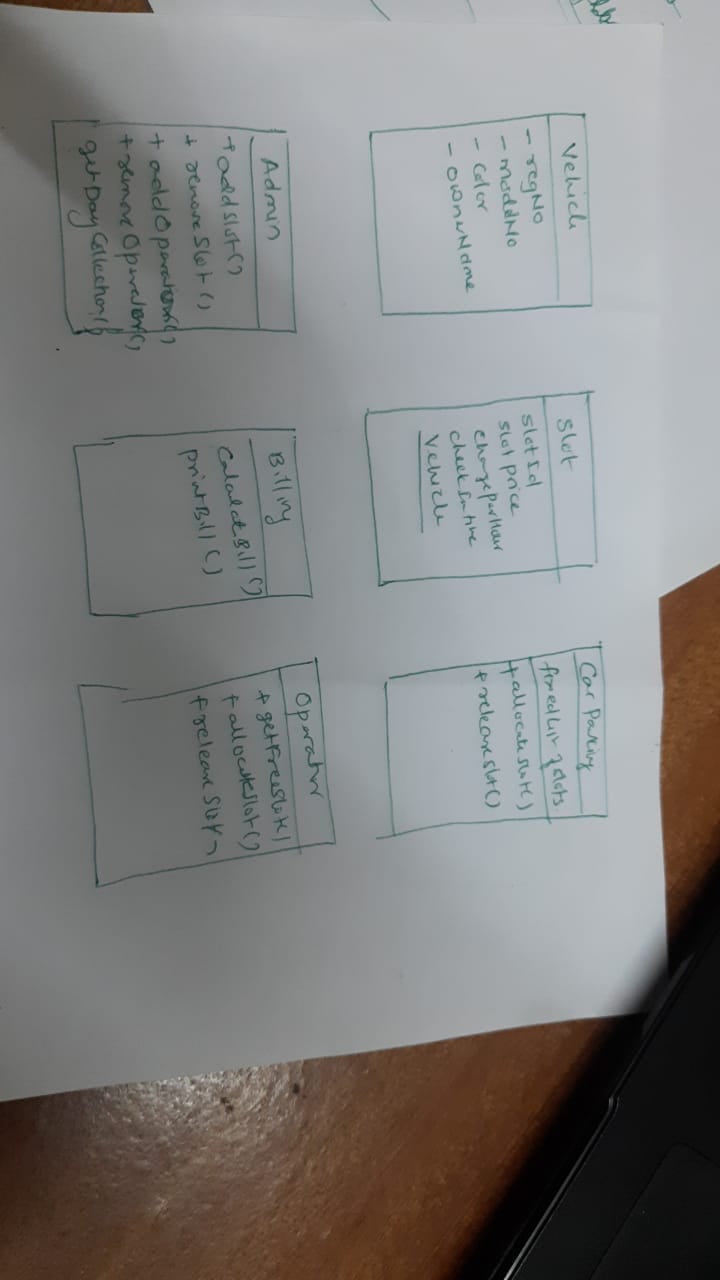 Vehicle
- regNo
- modelNo
- Color
- ownerName
Slot
slotId
slot price
chargePerHour
checkInTime
Vehicle
Car Parking
fixed List of slots
+ allocateSlot()
+ releaseSlot()
Admin
+ addSlot()
+ removeSlot()
+ addOperator()
+ removeOperator()
getDayCollection()
Billing
CalculateBill()
printBill()
Operator
+ getFreeSlot()
+ allocateSlot()
+ releaseSlot